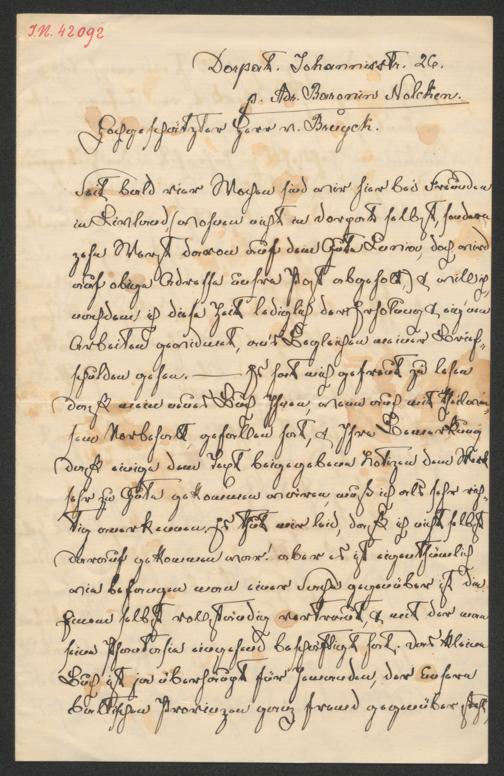 I.N. 42092
Dorpat. Johannisstr. 26.
p. Adr. Baronin Nolcken.
Hochgeschätzter Herr v. Bruyck.
Seit bald vier Wochen sind wir hier bei Freunden
in Livland (wohnen nicht in Dorpat selbst, sondern
zehn Werst davon auf dem Gute Lunia doch wird
auf obige Adresse unsre Post abgeholt) & will ich
nachdem ich diese Zeit lediglich der Erholung & eignen
Arbeiten gewidmet, an's Begleichen meiner Brief-
schulden gehen. — Es hat mich gefreut zu lesen
daß mein neues Buch Ihnen, wenn auch mit theilwei-
sem Vorbehalt, gefallen hat, & Ihre Bemerkung
daß einige dem Text beigegebene Notizen dem Werk
sehr zu Gute gekommen wären, muß ich als sehr rich-
tig anerkennen. Es thut mir leid, daß ich nicht selbst
darauf gekommen war: aber es ist eigenthümlich
wie befangen man einer Sache gegenüber ist die
Einem selbst vollständig vertraut, & mit der man
seine Phantasie eingehend beschäftigt hat. Das kleine
Buch ist ja überhaupt für Jemanden, der unsern
baltischen Provinzen ganz fremd gegenüber steht,